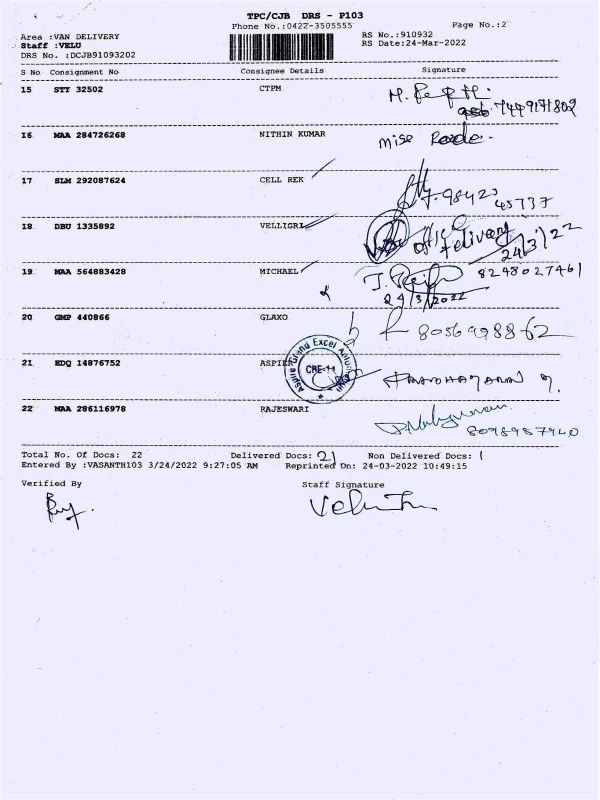 TPC/CJB DRS - P103
Phone No.:0422-3505555
Page No.:2
Area :VAN DELIVERY
RS No.:910932
Staff :VELU
RS Date:24-Mar-2022
DRS No. :DCJB91093202
S No Consignment No Consignee Details Signature
15 STY 32502 CTPM
7449171802
16 MAA 284726268 NITHIN KUMAR
mise
17 SLM 292087624 CELL REK
98423
45737
18 DBU 1335892 VELLIGRI
of delivery
24/3/22
19 MAA 564883428 MICHAEL
8248027461
24/3/2022
20 GMP 440866 GLAXO
8056998862
21 EDQ 14876752 ASPIER
Aspire Grand Excel
CBE-11
22 MAA 286116978 RAJESWARI
8098957940
Total No. Of Docs: 22 Delivered Docs: 21 Non Delivered Docs: 1
Entered By :VASANTH103 3/24/2022 9:27:05 AM Reprinted On: 24-03-2022 10:49:15
Verified By Staff Signature